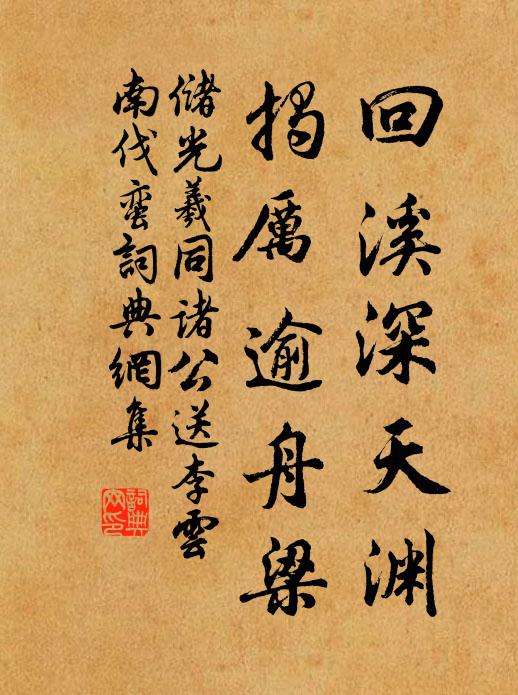 回溪深天渊
揭厲逾舟梁
儲光羲同諸公送李雲
南伐蠻詞典網集
詞典網印